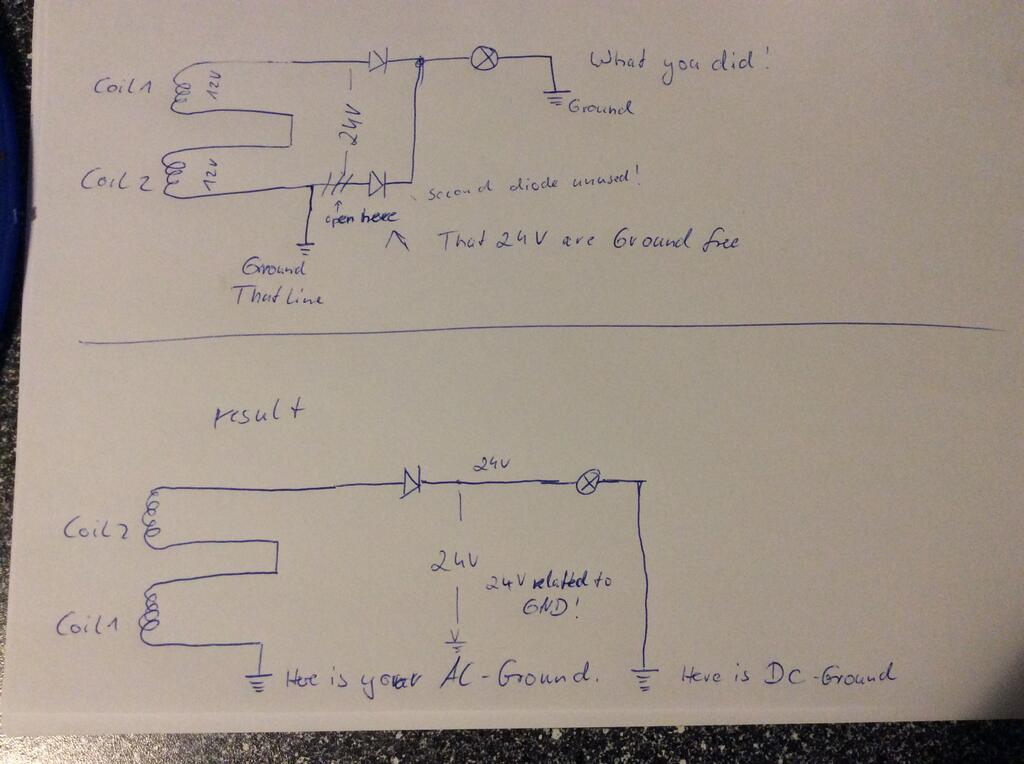 What you did!
Coil 1
12V
24V
Ground
Coil 2
12V
open here
Second diode unused!
That 24V are Ground free
Ground
That Line
result
24V
Coil 2
24V
24V related to
GND!
Coil 1
Here is your AC-Ground.
Here is DC-Ground